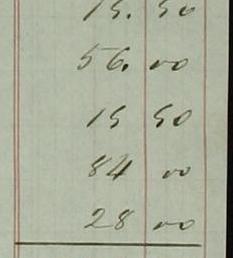 15. 50
56. 00
15 50
84 00
28 00